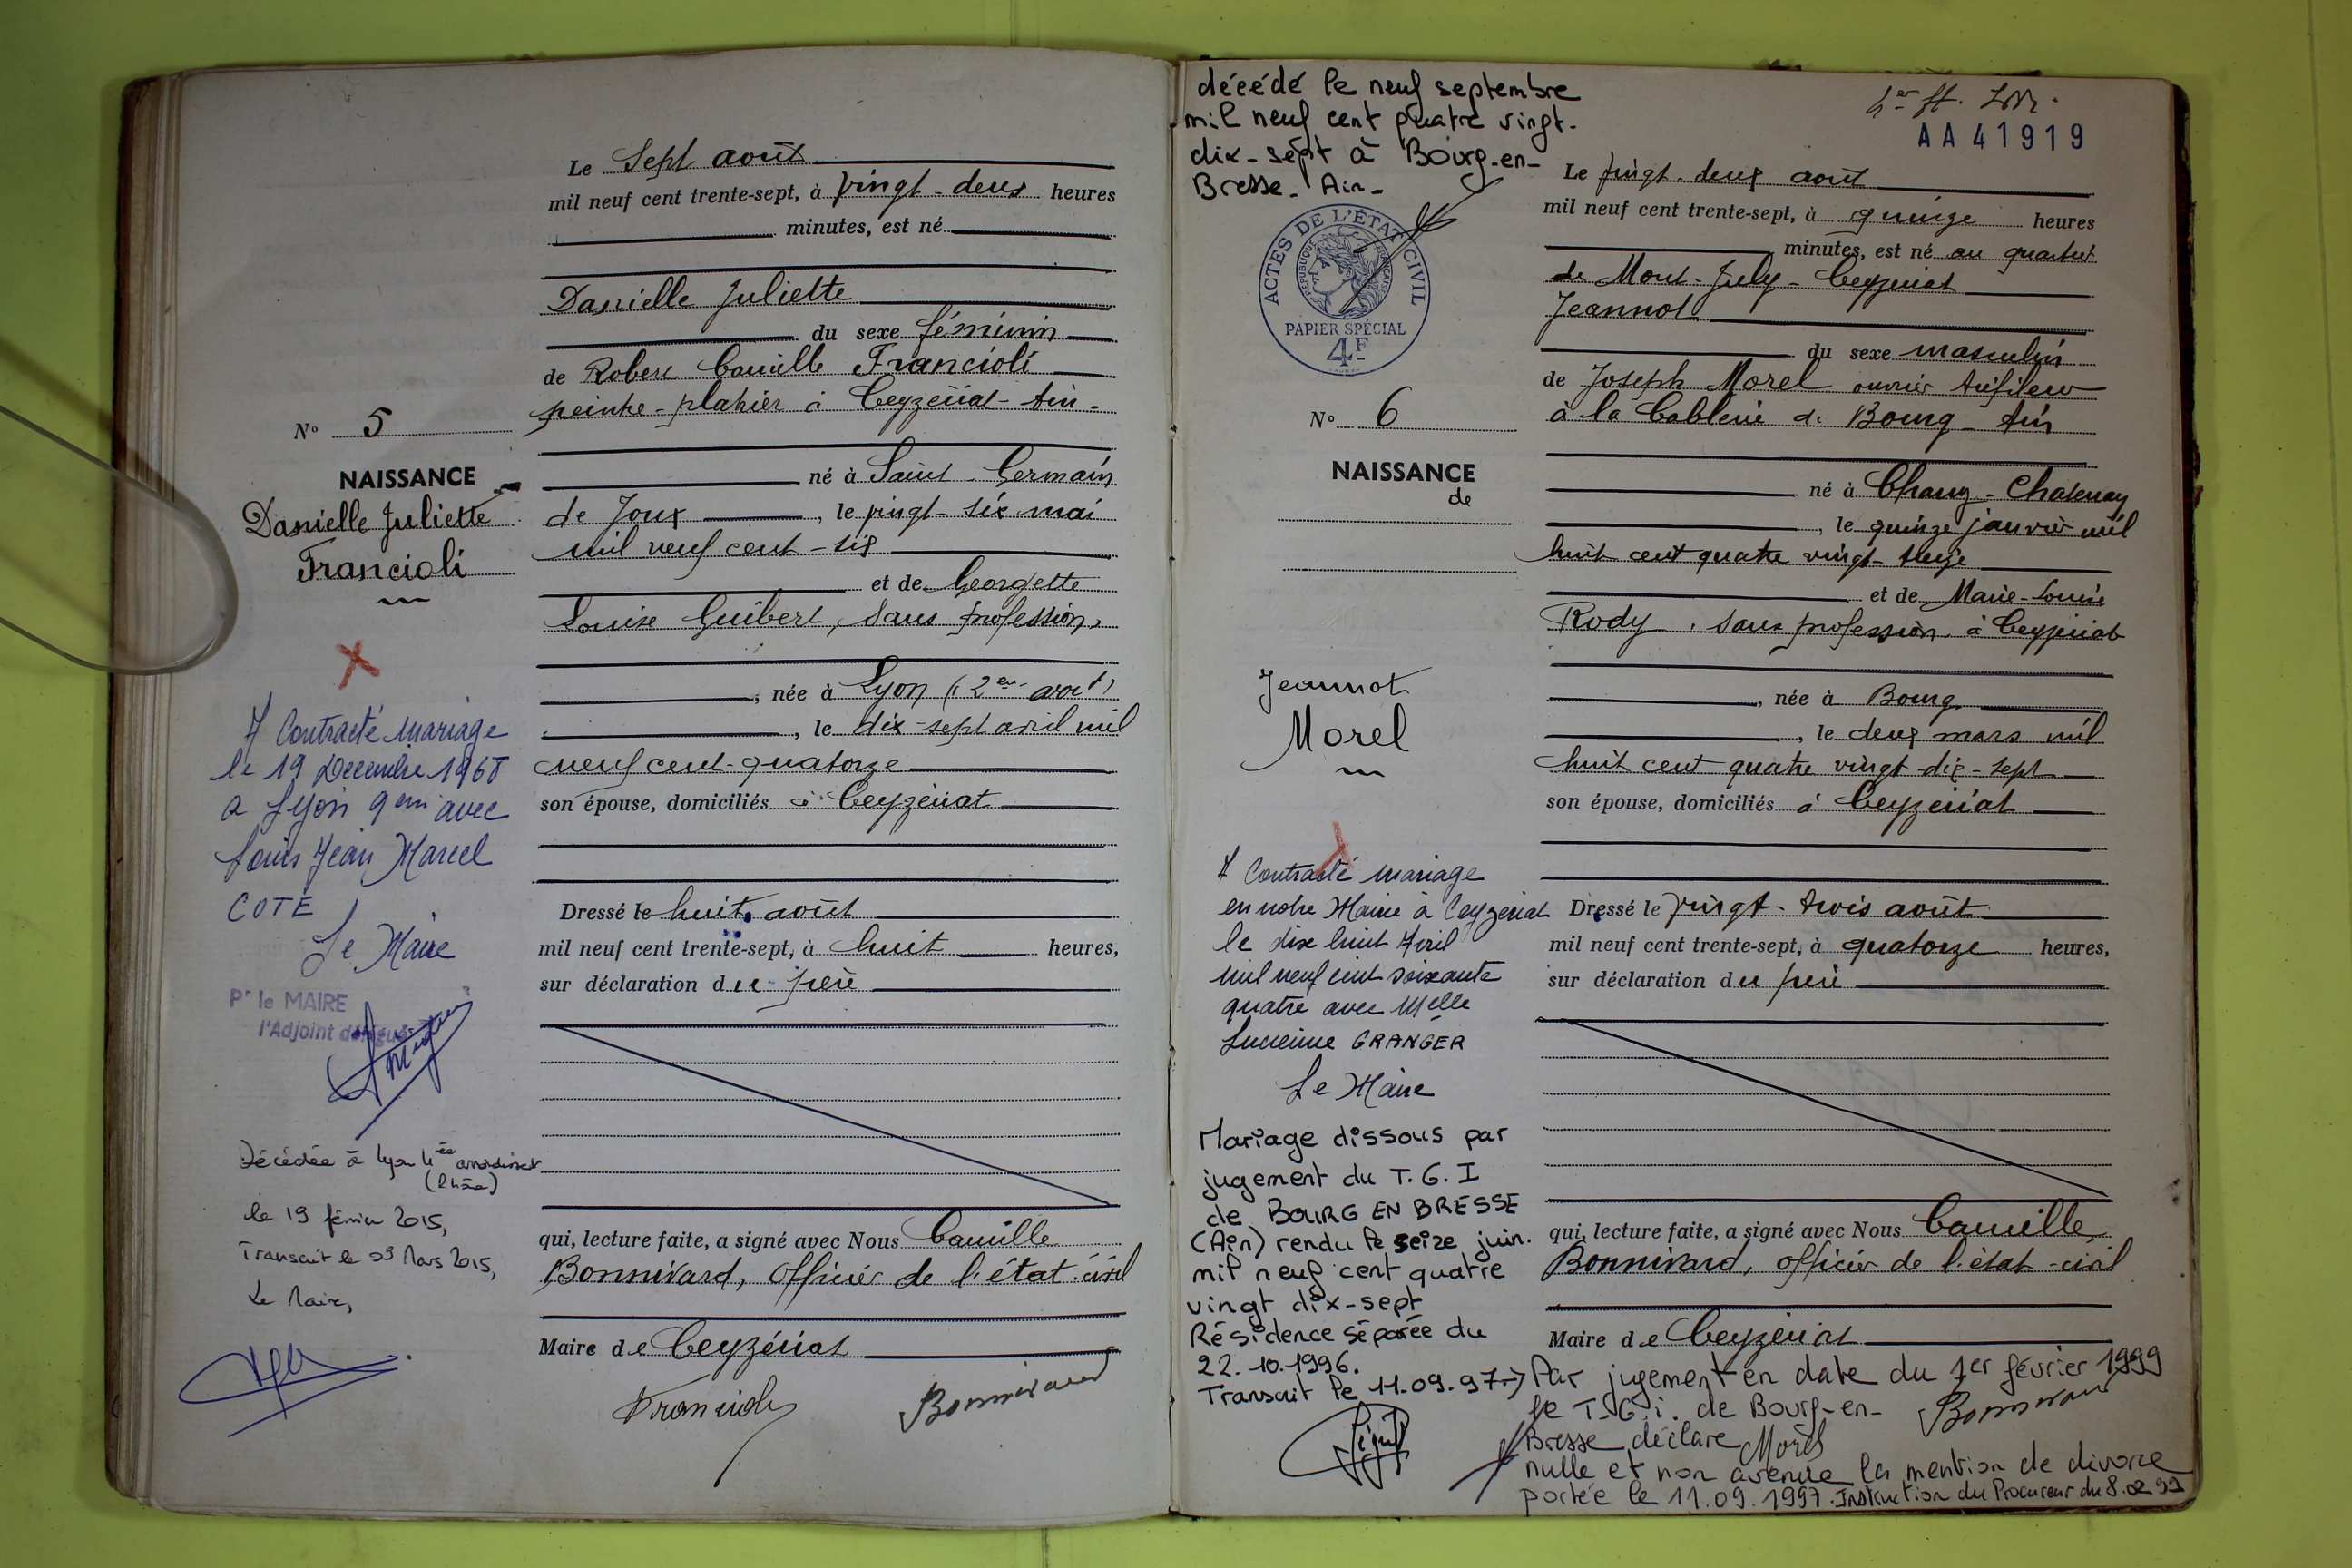 Le Sept août
mil neuf cent trente-sept, à vingt-deux heures
minutes, est né
Danielle Juliette
du sexe féminin
de Robert Camille Francioli
peintre-plâtrier à Ceyzériat-Ain-
né à Saint-Germain
de Joux, le vingt-six mai
mil neuf cent-six
et de Georgette
Louise Guibert, sans profession,
, née à Lyon (2e arrt)
, le dix-sept avril mil
neuf cent-quatorze
son épouse, domiciliés à Ceyzériat
Dressé le huit août
mil neuf cent trente-sept, à huit heures,
sur déclaration du père
qui, lecture faite, a signé avec Nous Camille
Bonnivard, officier de l'état-civil
Maire de Ceyzériat
Francioli
Bonnivard
No 5
NAISSANCE
Danielle Juliette
Francioli
Contracté mariage
le 19 Decembre 1968
a Lyon 9em avec
Louis Jean Marcel
COTE
Le Maire
Pr le MAIRE
l'Adjoint délégué
Décédée à Lyon 4ée arrondissmt
(Rhône)
le 19 février 2015,
Transcrit le 09 Mars 2015,
Le Maire,
décédé le neuf septembre
mil neuf cent quatre vingt-
dix-sept à Bourg-en-
Bresse-Ain-
ACTES DE L'ÉTAT CIVIL
RÉPUBLIQUE FRANÇAISE
PAPIER SPÉCIAL
4F
No 6
NAISSANCE
de
Jeannot
Morel
Contracté mariage
en notre Mairie à Ceyzériat
le dix huit Avril
mil neuf cent soixante
quatre avec Melle
Lucienne GRANGER
Le Maire
Mariage dissous par
jugement du T.G.I
de BOURG EN BRESSE
(Ain) rendu le seize juin.
mil neuf cent quatre
vingt dix-sept
Résidence séparée du
22.10.1996.
Transcrit le 11.09.97
AA41919
Le vingt-deux août
mil neuf cent trente-sept, à quinze heures
minutes, est né au quartier
de Mont-July-Ceyzériat
Jeannot
du sexe masculin
de Joseph Morel ouvrier tréfileur
à la Cablerie de Bourg-Ain
né à Chanoz-Chatenay
, le quinze janvier mil
huit cent quatre vingt-treize
et de Marie-Louise
Rody, sans profession à Ceyzériat
, née à Bourg
, le deux mars mil
huit cent quatre vingt-dix-sept
son épouse, domiciliés à Ceyzériat
Dressé le vingt-trois août
mil neuf cent trente-sept, à quatorze heures,
sur déclaration du père
qui, lecture faite, a signé avec Nous Camille
Bonnivard, officier de l'état-civil
Maire de Ceyzériat
Par jugement en date du 1er février 1999
le T.G.i. de Bourg-en-
Bonnivard
Bresse déclare
Morel
nulle et non avenue la mention de divorce
portée le 11.09.1997. Instruction du Procureur du 8.02.99